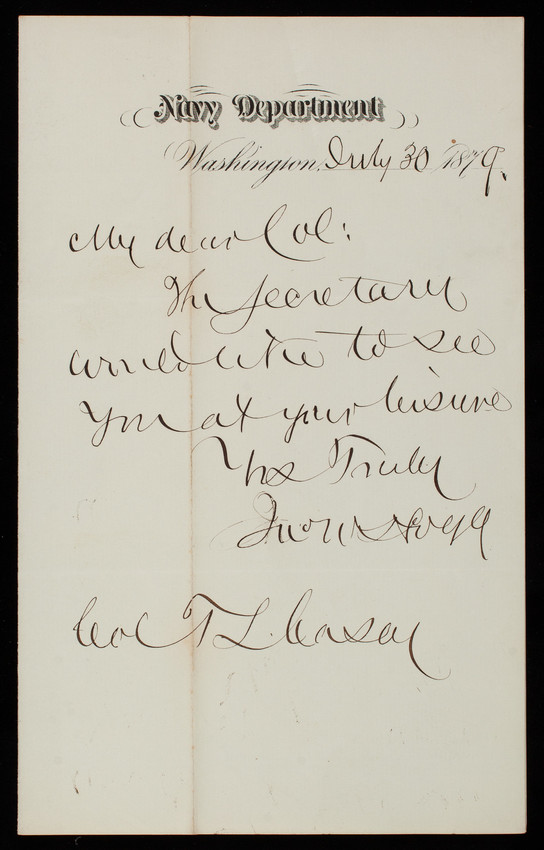 Navy Department
Washington, July 30 1879.
My dear Col:
The Secretary
would like to see
you at your leisure
Yrs Truly
Jno W Hogg
Col T L. Casey